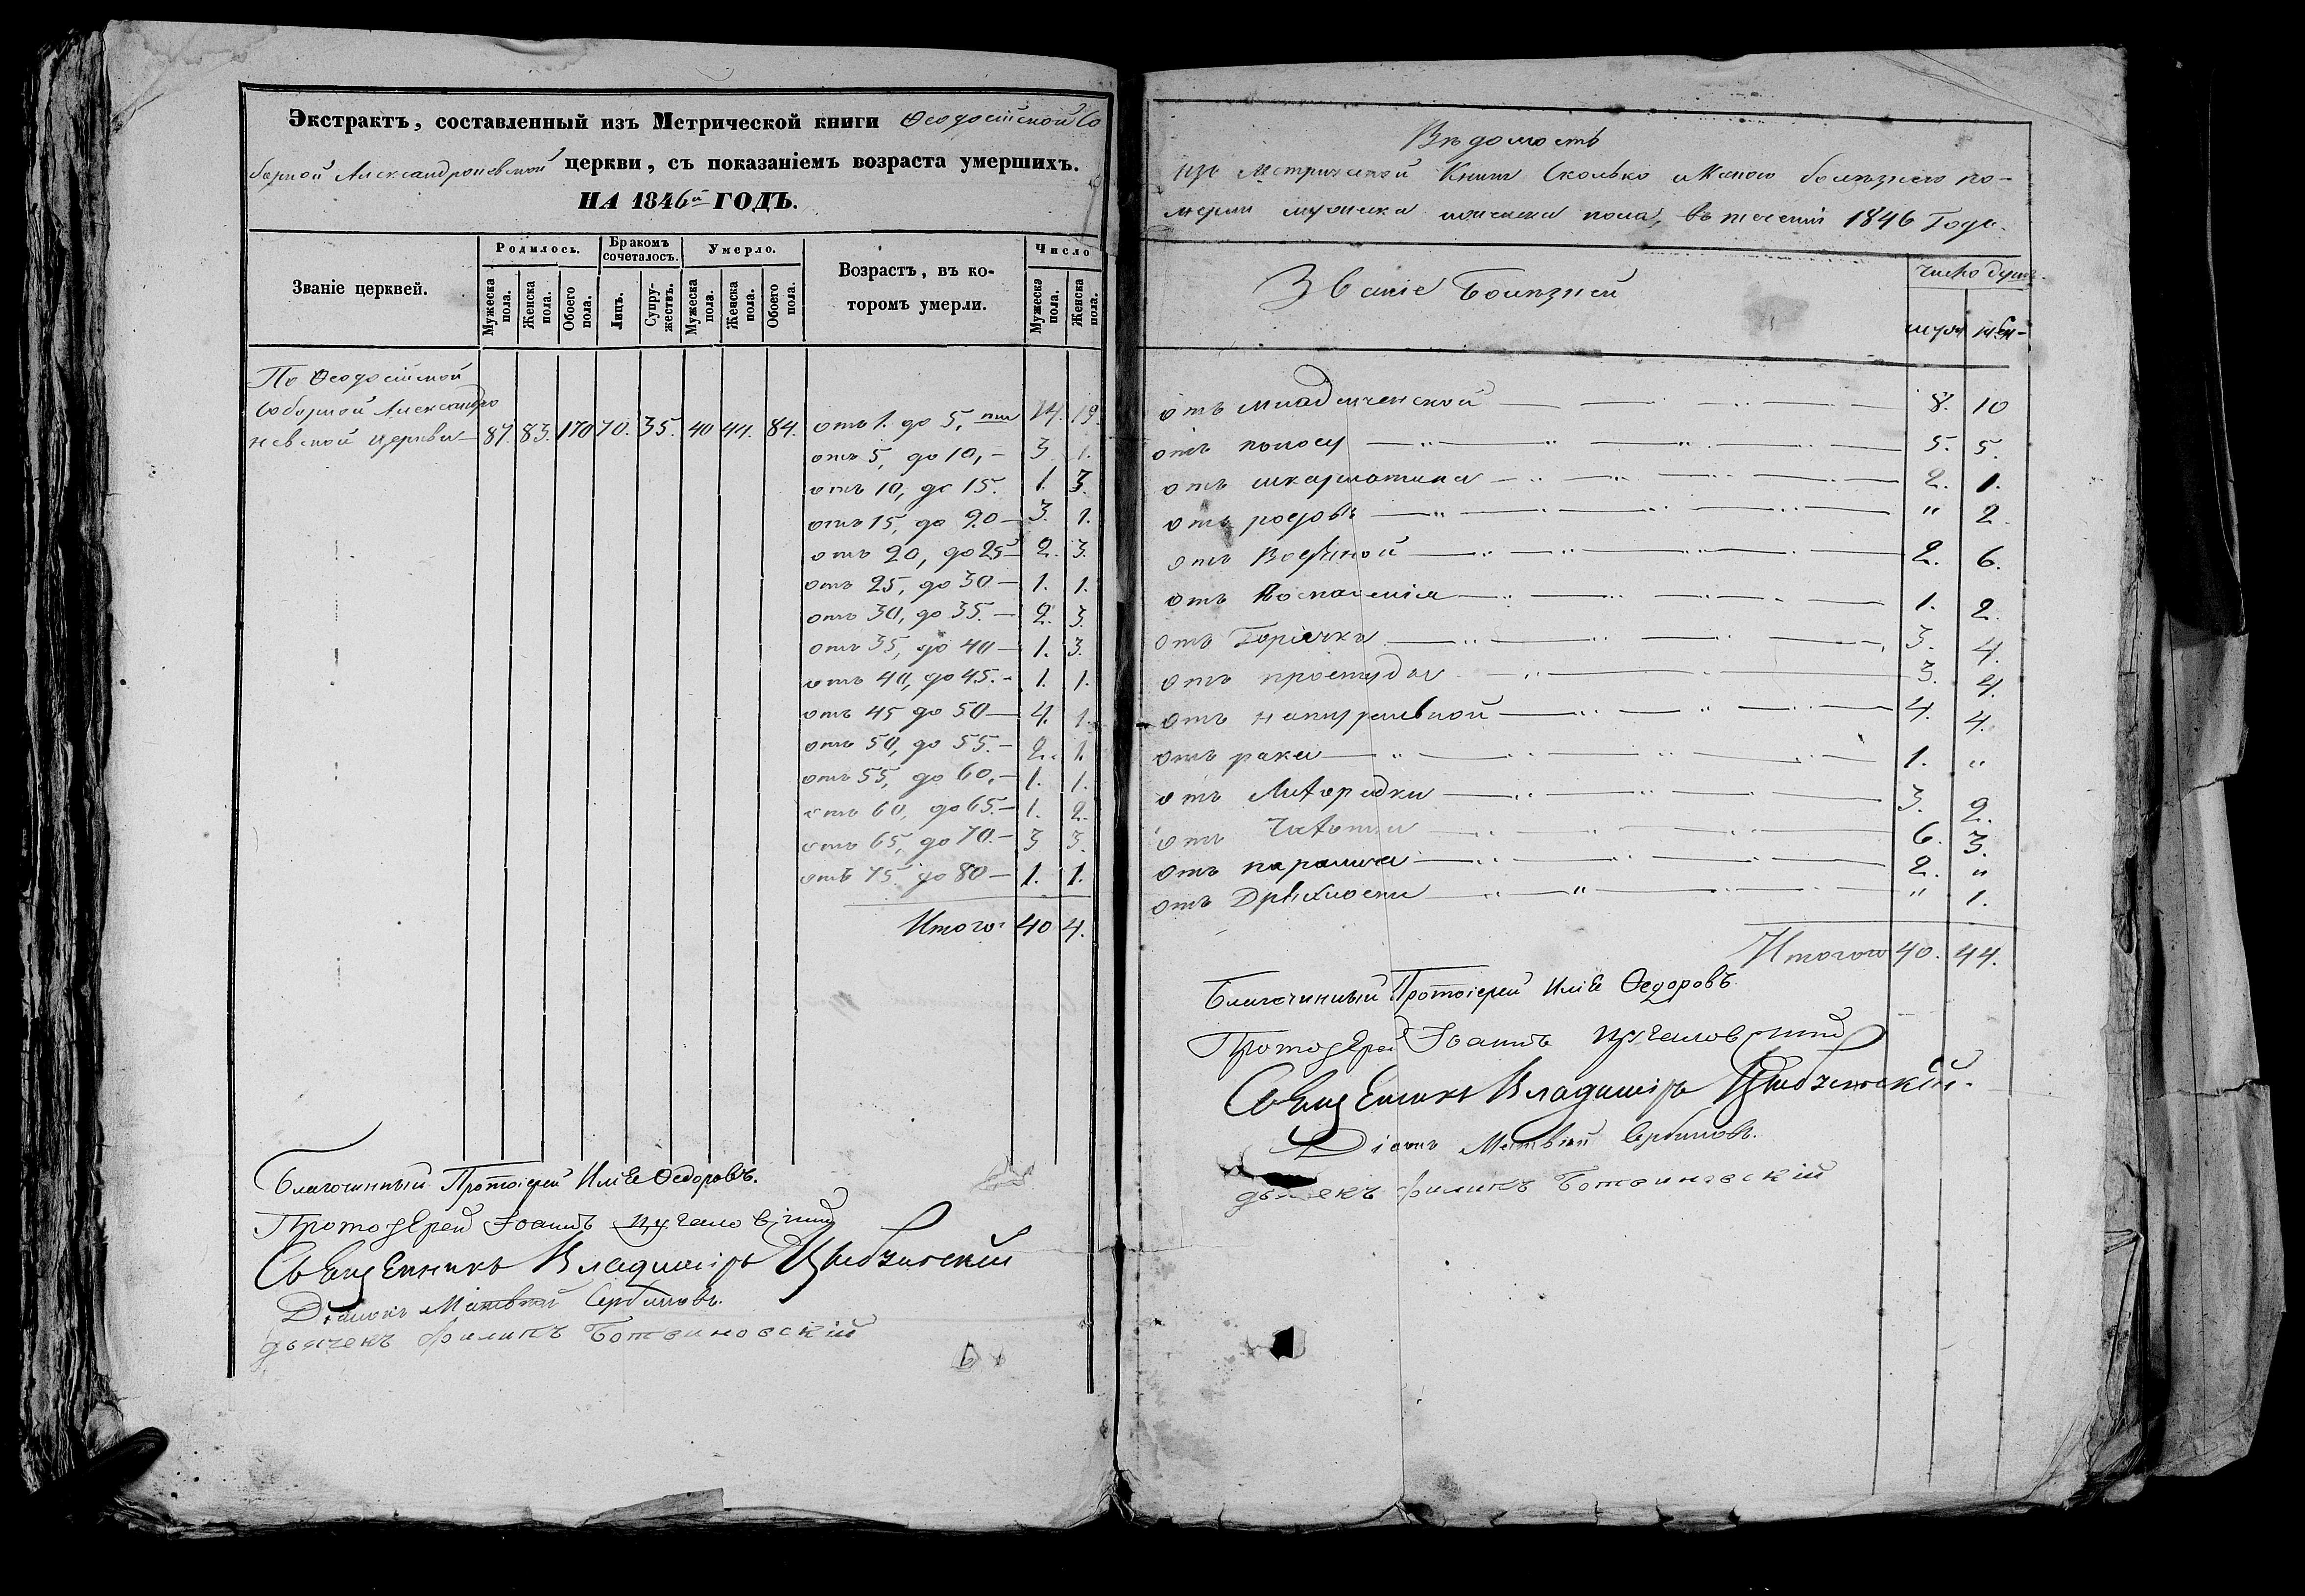 Экстрактъ, составленный изъ Метрической книги Ѳеодосійской Со
борной Александроневской церкви, съ показаніемъ возраста умершихъ.
НА 1846й ГОДЪ.
Званіе церквей.
Родилось.
Бракомъ сочеталось.
Умерло.
Возрастъ, въ ко-
торомъ умерли.
Число
Мужеска пола.
Женска пола.
Обоего пола.
Лицъ.
Супру-жествъ.
Мужеска пола.
Женска пола.
Обоего пола.
Мужеска пола.
Женска пола.
По Ѳеодосійской
Соборной Александро
невской церкви 87. 83. 170 70. 35. 40 44. 84. отъ 1. до 5, 14. 19.
отъ 5, до 10, — 3 1.
отъ 10, до 15. 1. 3.
отъ 15, до 20 — 3. 1.
отъ 20, до 25 — 2. 3.
отъ 25, до 30 — 1. 1.
отъ 30, до 35. — 2. 3.
отъ 35, до 40 — 1. 3.
отъ 40, до 45. — 1. 1.
отъ 45 до 50 — 4. 1.
отъ 50, до 55. — 2. 1.
отъ 55, до 60, — 1. 1.
отъ 60, до 65. — 1. 2.
отъ 65, до 70. — 3 3.
отъ 75 до 80 — 1. 1.
Итого 40 4.
Благочинный Протоіерей Илія Ѳедоровъ.
Протоіерей Іоаннъ
Священникъ Владиміръ
Діаконъ Матвей Сербиновъ.
дьячекъ филипъ Ботвиновскій
Ведомость
изъ Метрической Книги Сколько и Какою болезнею по-
мерли мужеска и женска пола, въ теченіи 1846 Года.
Званіе Болезней
число душъ
муж жен
отъ младенческой 8. 10
отъ поносу 5. 5.
отъ шкарлатина 2. 1.
отъ родовъ " 2.
отъ Водяной 2. 6.
отъ Воспаленія 1. 2.
отъ Горячки 3. 4.
отъ простуды 3. 4.
отъ натуральной 4. 4.
отъ рака 1. "
отъ Лихорадки 3. 2.
отъ Чахотки 6. 3.
отъ паралича 2. "
отъ Дряхлости " 1.
Итого 40. 44.
Благочинный Протоіерей Илія Ѳедоровъ
Протоіерей Іоаннъ
Священникъ Владиміръ
Діаконъ Матвей Сербиновъ.
дьячекъ филипъ Ботвиновскій